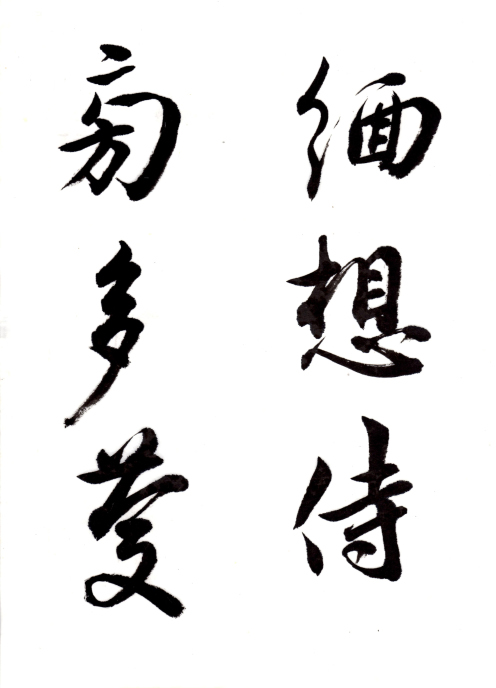 緬想侍
旁多慶